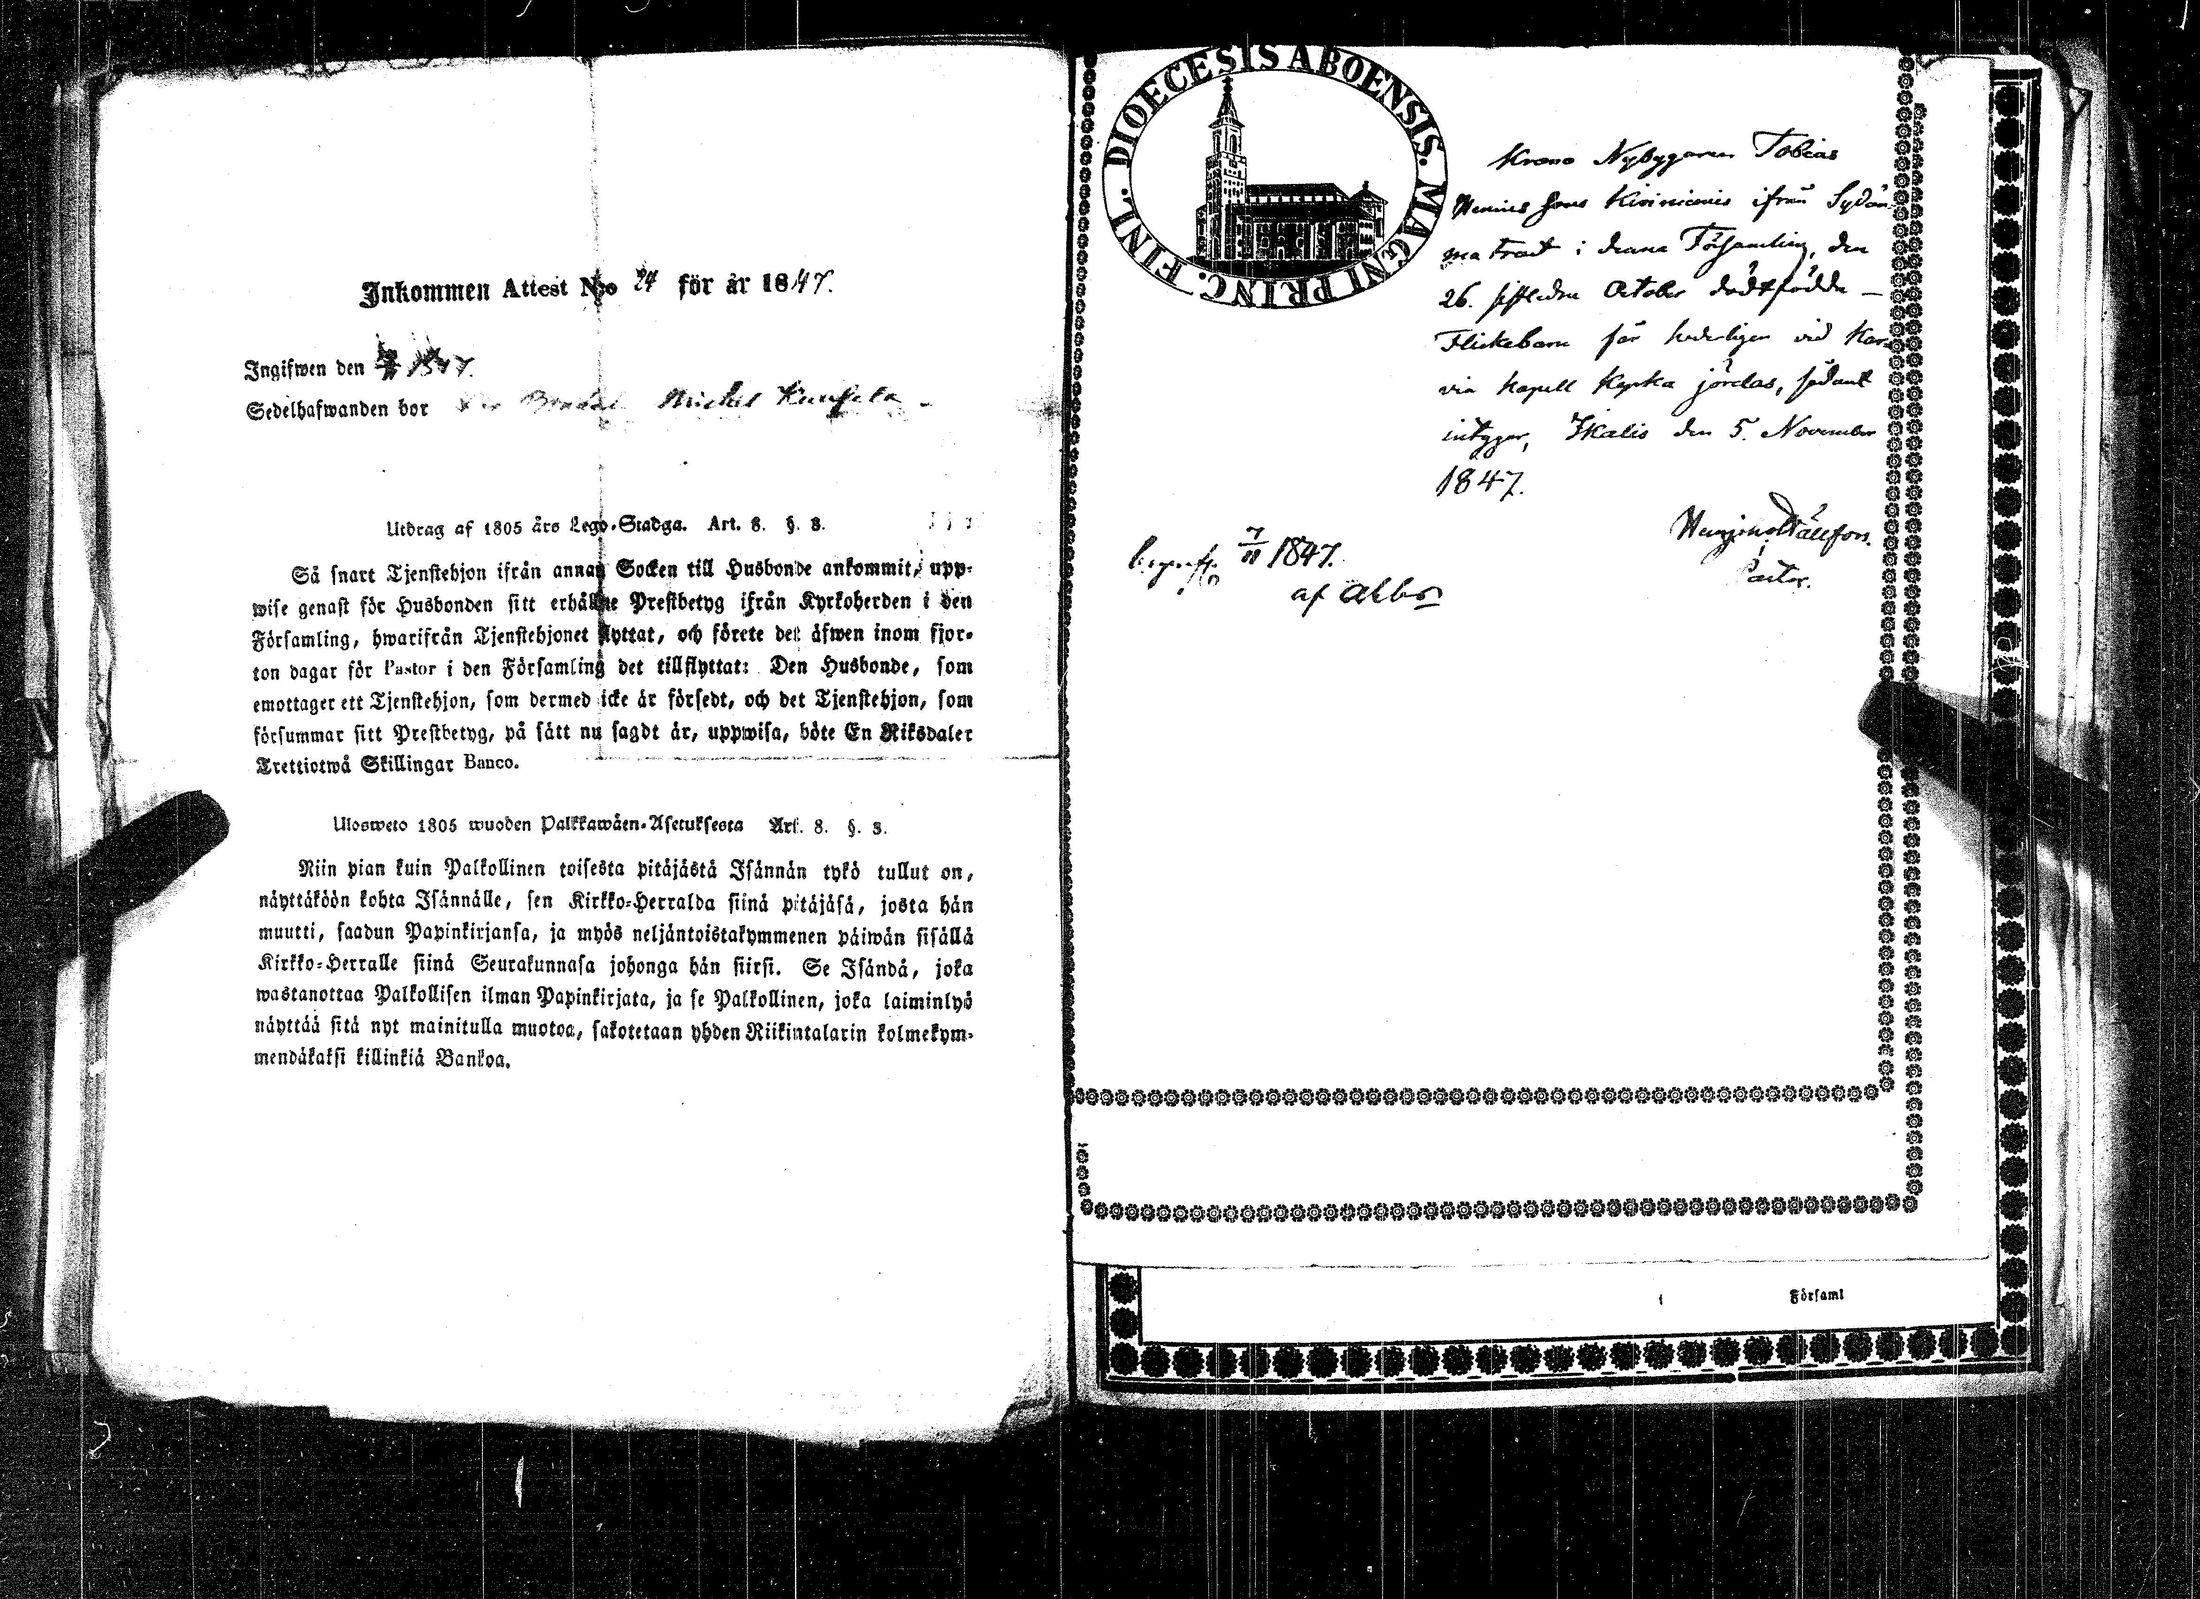 Inkommen Attest N:o 24 för år 1847.
Ingifwen den 1847.
Sedelhafwanden bor Michel
Utdrag af 1805 års Lego-Stadga. Art. 8. §. 3.
Så snart Tjenstehjon ifrån annan Socken till Husbonde ankommit, upp-
wise genast för Husbonden sitt erhållne Prestbetyg ifrån Kyrkoherden i den
Församling, hwarifrån Tjenstehjonet flyttat, och förete det äfwen inom fjor-
ton dagar för Pastor i den Församling det tillflyttat: Den Husbonde, som
emottager ett Tjenstehjon, som dermed icke är försedt, och det Tjenstehjon, som
försummar sitt Prestbetyg, på sätt nu sagdt är, uppwisa, böte En Riksdaler
Trettiotwå Skillingar Banco.
Ulosweto 1805 wuoden Palkkawäen-Asetuksesta Art. 8. §. 3.
Niin pian kuin Palkollinen toisesta pitäjästä Isännän tykö tullut on,
näyttäköön kohta Isännälle, sen Kirkko-Herralda siinä pitäjäsä, josta hän
muutti, saadun Papinkirjansa, ja myös neljäntoistakymmenen päiwän sisällä
Kirkko-Herralle siinä Seurakunnasa johonga hän siirsi. Se Isändä, joka
wastanottaa Palkollisen ilman Papinkirjata, ja se Palkollinen, joka laiminlyö
näyttää sitä nyt mainitulla muotoa, sakotetaan yhden Riikintalarin kolmekym-
mendäkaksi killinkiä Bankoa.
DIOECESIS ABOENSIS. MAGNI PRINC. FINL.
Krono Nybyggaren Tobias
sons ifrån Sydän
ma trad i denna Församling, den
26. sistledne October dödfödda —
Flickebarn får hederligen vid Kar-
via kapell Kyrka jordas, sådant
intygar, Ikalis den 5. November
1847.
Pastor.
7/11 1847.
af
Församl